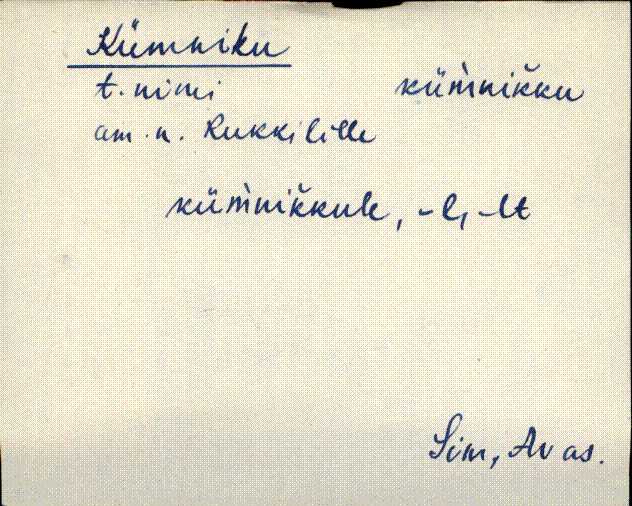 Kümniku
t. nimi küm̀nikku
am. n. Rukkilille
küm̀nikkule, -l, -lt
Sim, Avas.